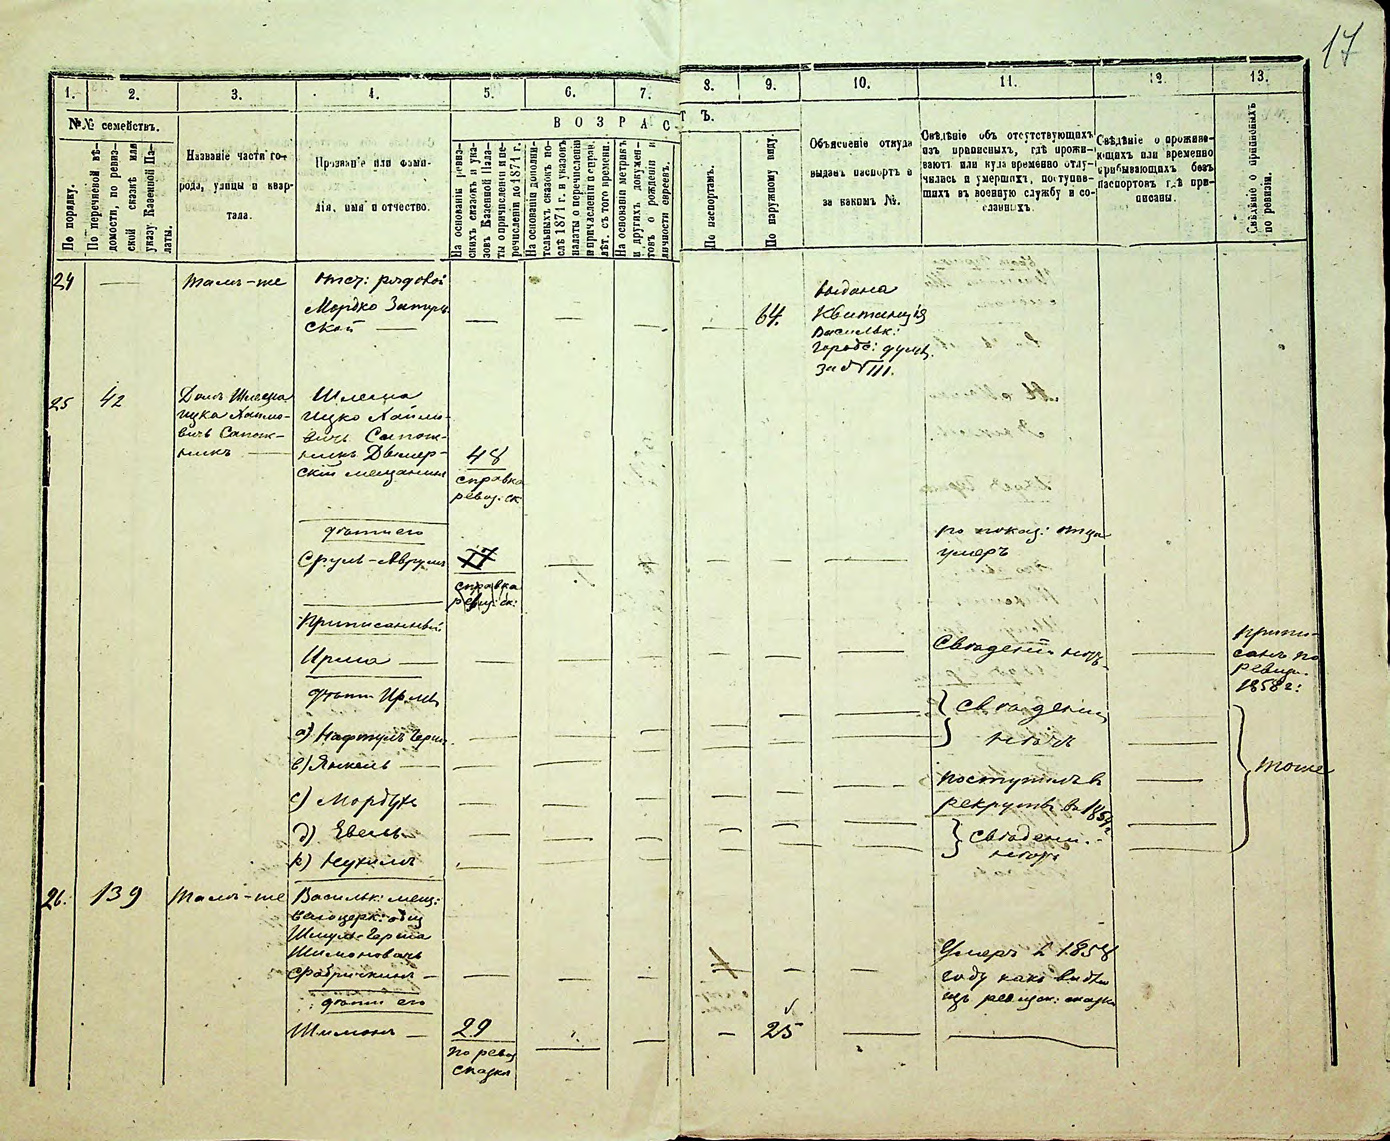 17
1.
2.
3.
4.
5.
6.
7.
8.
9.
10.
11.
12.
13.
№№ семействъ.
ВОЗРАСТЪ.
По порядку.
По перечневой вѣ-
домости, по ревиз-
ской сказкѣ или
указу Казенной Па-
латы.
Названіе части го-
рода, улицы и квар-
тала.
Прозваніе или фами-
лія, имя и отчество.
На основаніи ревиз-
скихъ сказокъ и ука-
зовъ Казенной Пала-
ты о причисленіи и пе-
речисленіи до 1871 г.
На основаніи дополни-
тельныхъ сказокъ по-
слѣ 1871 г. и указовъ
палаты о перечисленіи
и причисленіи еврей.
лѣт. съ того времени.
На основаніи метрикъ
и другихъ докумен-
товъ о рожденіи и
личности евреевъ.
По паспортамъ.
По наружному виду.
Объясненіе откуда
выданъ паспортъ и
за какимъ №.
Свѣдѣніе объ отсутствующихъ
изъ приписныхъ, гдѣ прожи-
ваютъ или куда временно отлу-
чились и умершихъ, поступив-
шихъ въ военную службу и со-
сланныхъ.
Свѣдѣніе о прожива-
ющихъ или временно
прибывающихъ безъ
паспортовъ гдѣ при-
писаны.
Свѣдѣніе о приписныхъ
по ревизіи.
24
Тамъ-же
отст: рядовой
Мордко Затур
ской
64.
выдана
Квитанція
Васильк:
Городс: думы
за № III.
25
42
Домъ Шлема
Ицка Хаимо-
вичъ Сапож-
никъ
Шлема
Ицко Хаймо-
вичъ Сапож-
никъ
скій мещанинъ
48
справка
ревиз. ск
дѣти его
Сруль-Аврумъ
17
справка
ревиз: ск:
по показ: отца
умеръ
Приписанный
Ирма
Сведеній нѣтъ
припи-
санъ по
ревизи.
1858 г:
дѣти Ирмы
а) Нафтулъ Герш
в) Янкель
сведений
нѣтъ
тоже
с) Мордухъ
поступилъ в
рекруты в 1854 г
д) Евель
к) Нухимъ
сведени.
нѣтъ
26.
139
Тамъ-же
Васильк: мещ:
Белоцерк: общ
Шмуль-Герша
Шимоновичъ
Фабрикант
Умеръ в 1858
году како видно
изъ ревизск: сказки
дѣти его
Шимонъ
29
по ревиз
сказки
25